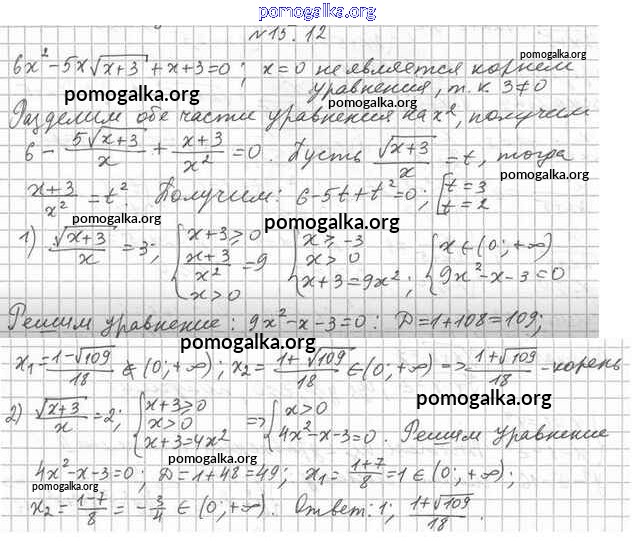 pomogalka.org
№15.12
6x² - 5x√(x+3) + x + 3 = 0; x = 0 не является корнем
pomogalka.org
уравнения, т.к 3≠0
pomogalka.org pomogalka.org
Разделим обе части уравнения на x², получим
6 - 5√(x+3)/x + (x+3)/x² = 0. Пусть √(x+3)/x = t, тогда
pomogalka.org
(x+3)/x² = t². Получим: 6-5t+t²=0; [t=3 t=2
pomogalka.org pomogalka.org
1) √(x+3)/x = 3; {x+3≥0 (x+3)/x² = 9 x>0 {x≥-3 x>0 x+3=9x²; {x∈(0;+∞) 9x²-x-3=0
pomogalka.org
Решим уравнение: 9x²-x-3=0: D=1+108=109;
pomogalka.org
x₁=(1-√109)/18 ∉ (0;+∞); x₂=(1+√109)/18 ∈ (0;+∞) => (1+√109)/18 - корень
pomogalka.org
2) √(x+3)/x = 2; {x+3≥0 x>0 x+3=4x² => {x>0 4x²-x-3=0. Решим уравнение
pomogalka.org
4x²-x-3=0; D=1+48=49; x₁=(1+7)/8=1∈(0;+∞);
pomogalka.org
x₂=(1-7)/8 = -3/4 ∈ (0;+∞). Ответ: 1; (1+√109)/18.
pomogalka.org pomogalka.org